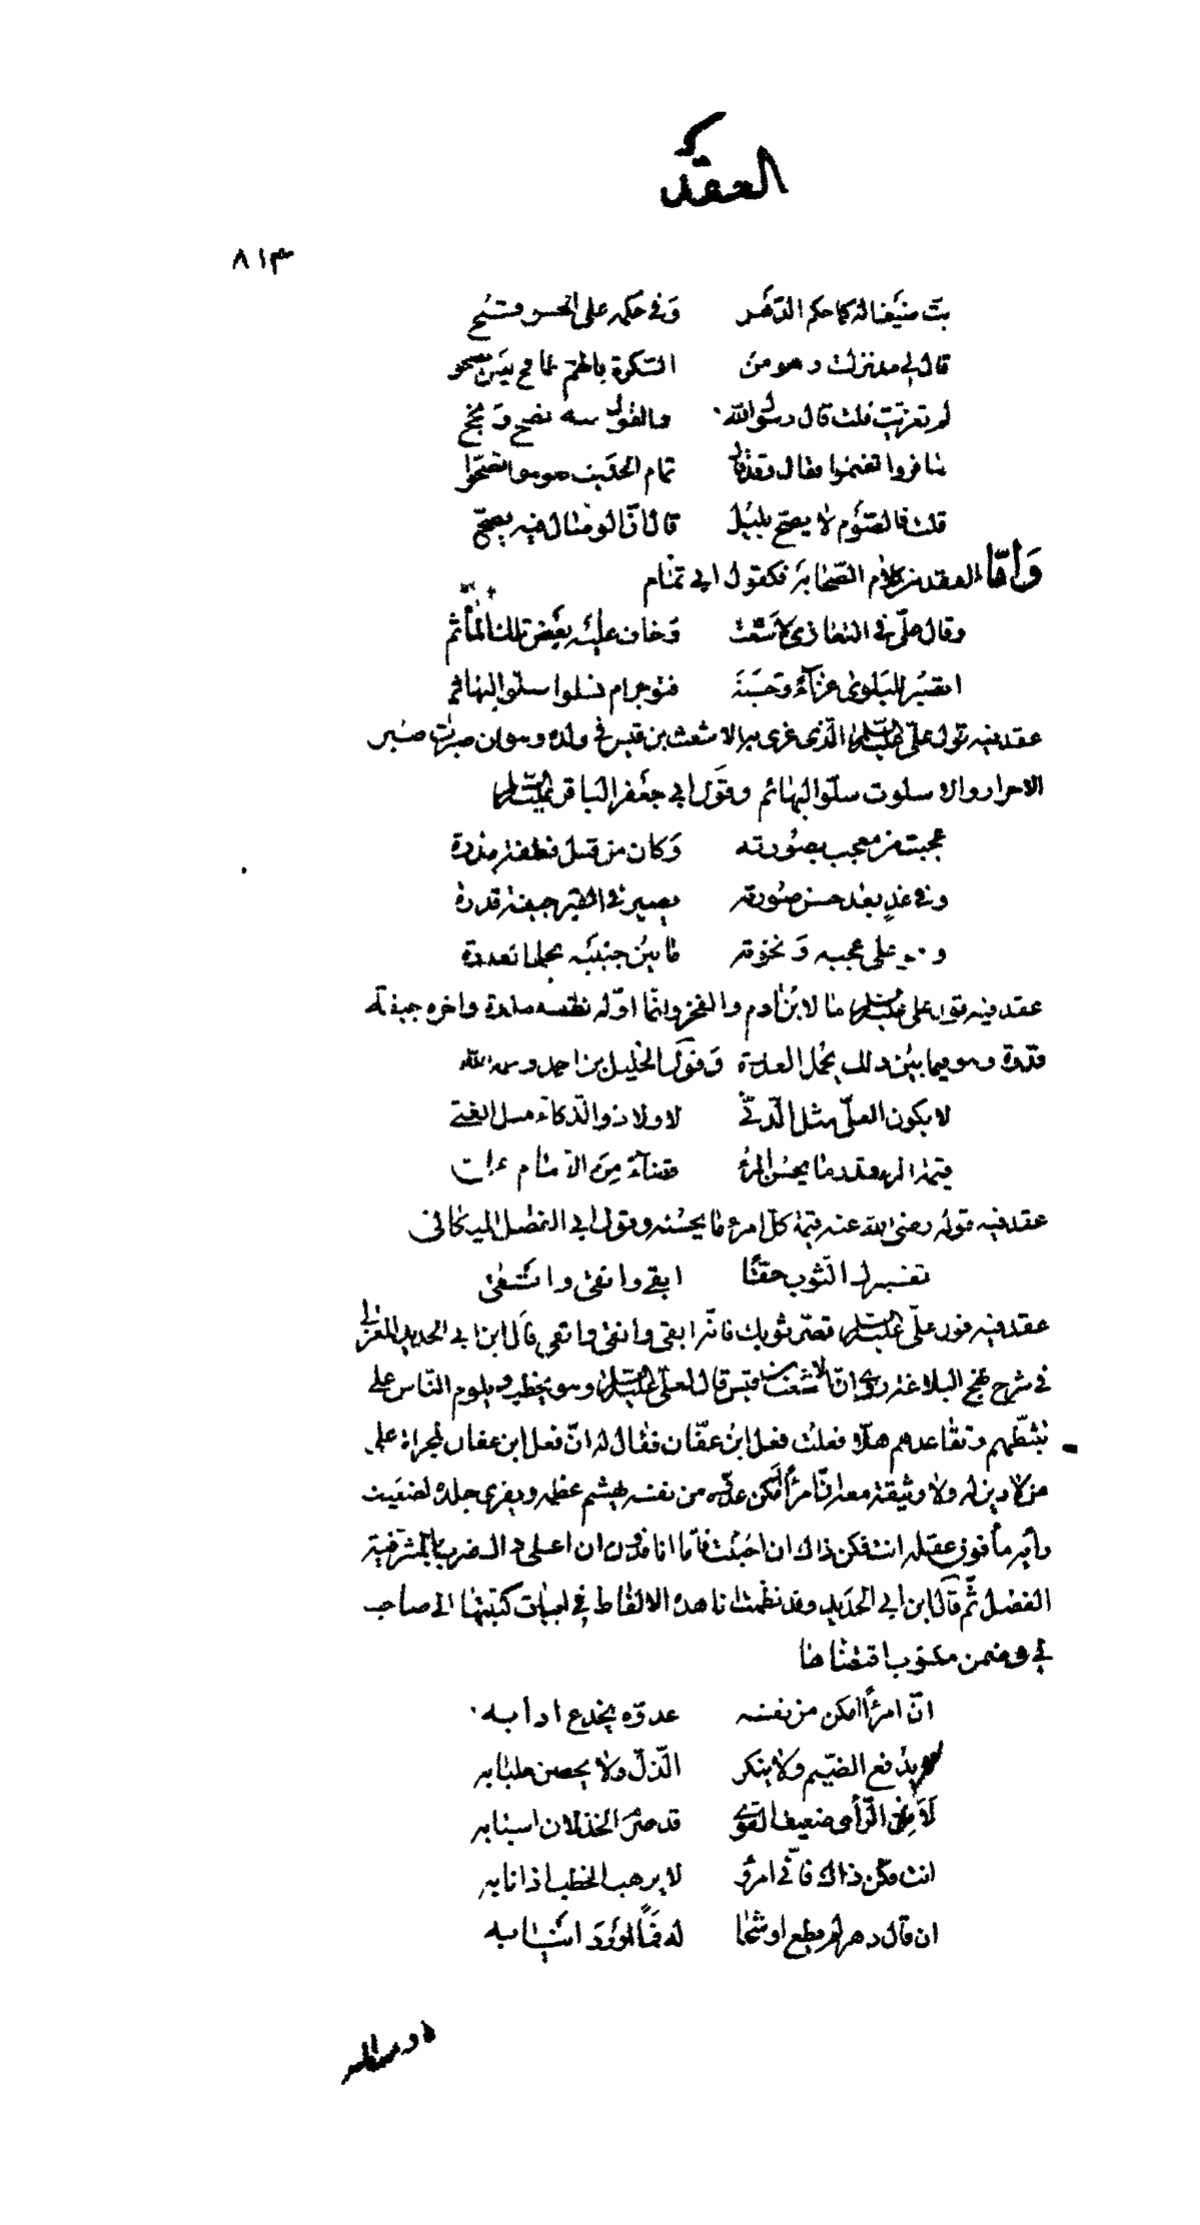 العقد
٨١٣
بتّ ضيفا له كما حكم الدّهر وفى حكمه على الحر قبح
قال لى مذ نزلت وهو من السّكرة بالهمّ طافح ليس يصحو
لم تغرّبت قلت قال رسول الله والقول منه نصح ونجح
سافروا تغنموا فقال وقد قال تمام الحديث صوموا تصحّوا
قلت فالصّوم لا يصحّ بليل قال انّ الوصال فيه يصحّ
وأمّا العقد من كلام الصّحابة فكقول ابى تمّام
وقال علىّ فى التعازى لاشعث وخاف عليه بعض تلك المأثم
اتصبر للبلوى عزآء وحسبة فتوجرام تسلوا سلوّ البهائم
عقد فيه قول علىّ عليه السلام الّذى عزى به الاشعث بن قيس فى ولده وهو ان صبرت صبر
الاحرار والا سلوت سلوّ البهائم وقول ابى جعفر الباقر عليه السلام
عجبت من معجب بصورته وكان من قبل نطفة مذرة
وفى غد بعد حسن صورته يصير فى القبر جيفة قذرة
وهو على عجبه ونخوته ما بين جنبيه يحمل العذرة
عقد فيه قول على عليه السلام ما لابن ادم والفخر وانّما اوّله نطفة مذرة واخره جيفة
قذرة وهو فيما بين ذلك يحمل العذرة وقول الخليل بن احمد رحمه الله
لا يكون العلىّ مثل الدّنىّ لا ولا ذو الذكاء مثل الغبى
قيمة المرء قدر ما يحسن المرء قضآء من الامام على
عقد فيه قوله رضى الله عنه قيمة كلّ امرء ما يحسنه وقول ابى الفضل الميكالى
تقصيرك الثوب حقّا ابقى وانقى واتقى
عقد فيه قول علىّ عليه السلام قصّر ثوبك فانّه ابقى وانقى واتقى قال ابن ابى الحديد المعتزلى
فى شرح نهج البلاغة روى انّ الاشعث بن قيس قال لعلىّ عليه السلام وهو يخطب ويلوم النّاس على
تثبّطهم وتقاعدهم هلّا فعلت فعل ابن عفّان فقال له انّ فعل ابن عفان لمخزاة على
من لا دين له ولا وثيقة معه انّ امرأ امكن عدوّه من نفسه يهشم عظمه ويفرى جلده لضعيف
رأيه مأفون عقله انت فكن ذاك ان احببت فأمّا انا فدون ان اعطى ذاك ضرب بالمشرفية
الفصل ثمّ قال ابن ابى الحديد وقد نظمت انا هذه الالفاظ فى ابيات كتبتها الى صاحب
لى فى ضمن مكتوب اقتضاها
انّ امرأ امكن من نفسه عدوّه يخدع ارابه
لا يدفع الضّيم ولا ينكر الذّلّ ولا يحصن جلبابه
لفائل الرّأى ضعيف القوى قد صرّم الخذلان اسبابه
انت فكن ذاك فانّى امرؤ لا يرهب الخطب اذا نابه
ان قال دهر لم يطع او شحا له فما ادرد انيابه